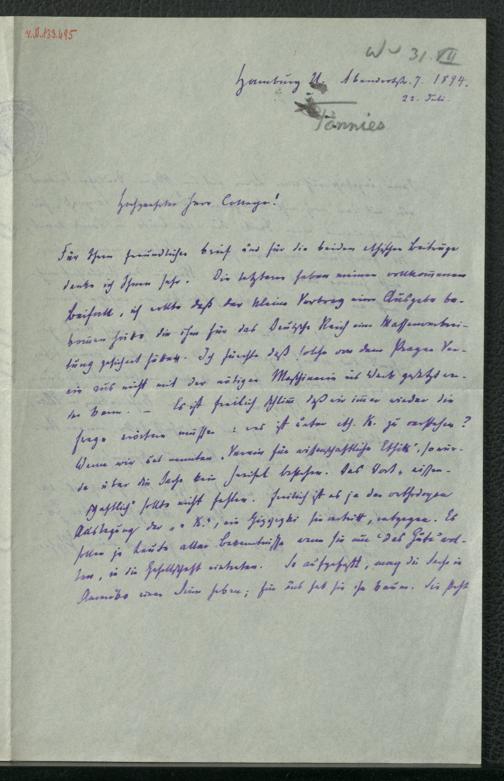 4.D.133.695
W 31. VII
Hamburg U. Abendrothstr. 7. 1894.
22. Juli.
Tönnies
Hochgeehrter Herr College!
Für Ihren freundlichen Brief und für die beiden ethischen Beiträge
danke ich Ihnen sehr. Die letzteren haben meinen vollkommenen
Beifall, ich wollte daß der kleine Vortrag eine Ausgabe be-
kommen hätte die ihm für das Deutsche Reich eine Massenverbrei-
tung gesichert hätte. Ich fürchte daß solche von dem Prager Ver-
ein aus nicht mit der nötigen Maschinerie ins Werk gesetzt wer-
den kann. – Es ist freilich schlimm daß wir immer wieder die
Frage erörtern müssen: was ist unter eth. K. zu verstehen?
Wenn wir uns nennten „Verein für wissenschaftliche Ethik", so wür-
de über die Sache kein Zweifel bestehen. Das Wort „wissen-
schaftlich" sollte nicht fehlen. Freilich ist es ja der orthodoxen
Auslegung der „e. K.", wie Gizycki sie vertritt, entgegen. Es
sollen ja Leute aller Bekenntnisse wenn sie nur „das Gute" wol-
len, in die Gesellschaft eintreten. So aufgefaßt, mag die Sache in
Amerika einen Sinn haben; für uns hat sie ihn kaum. Sie